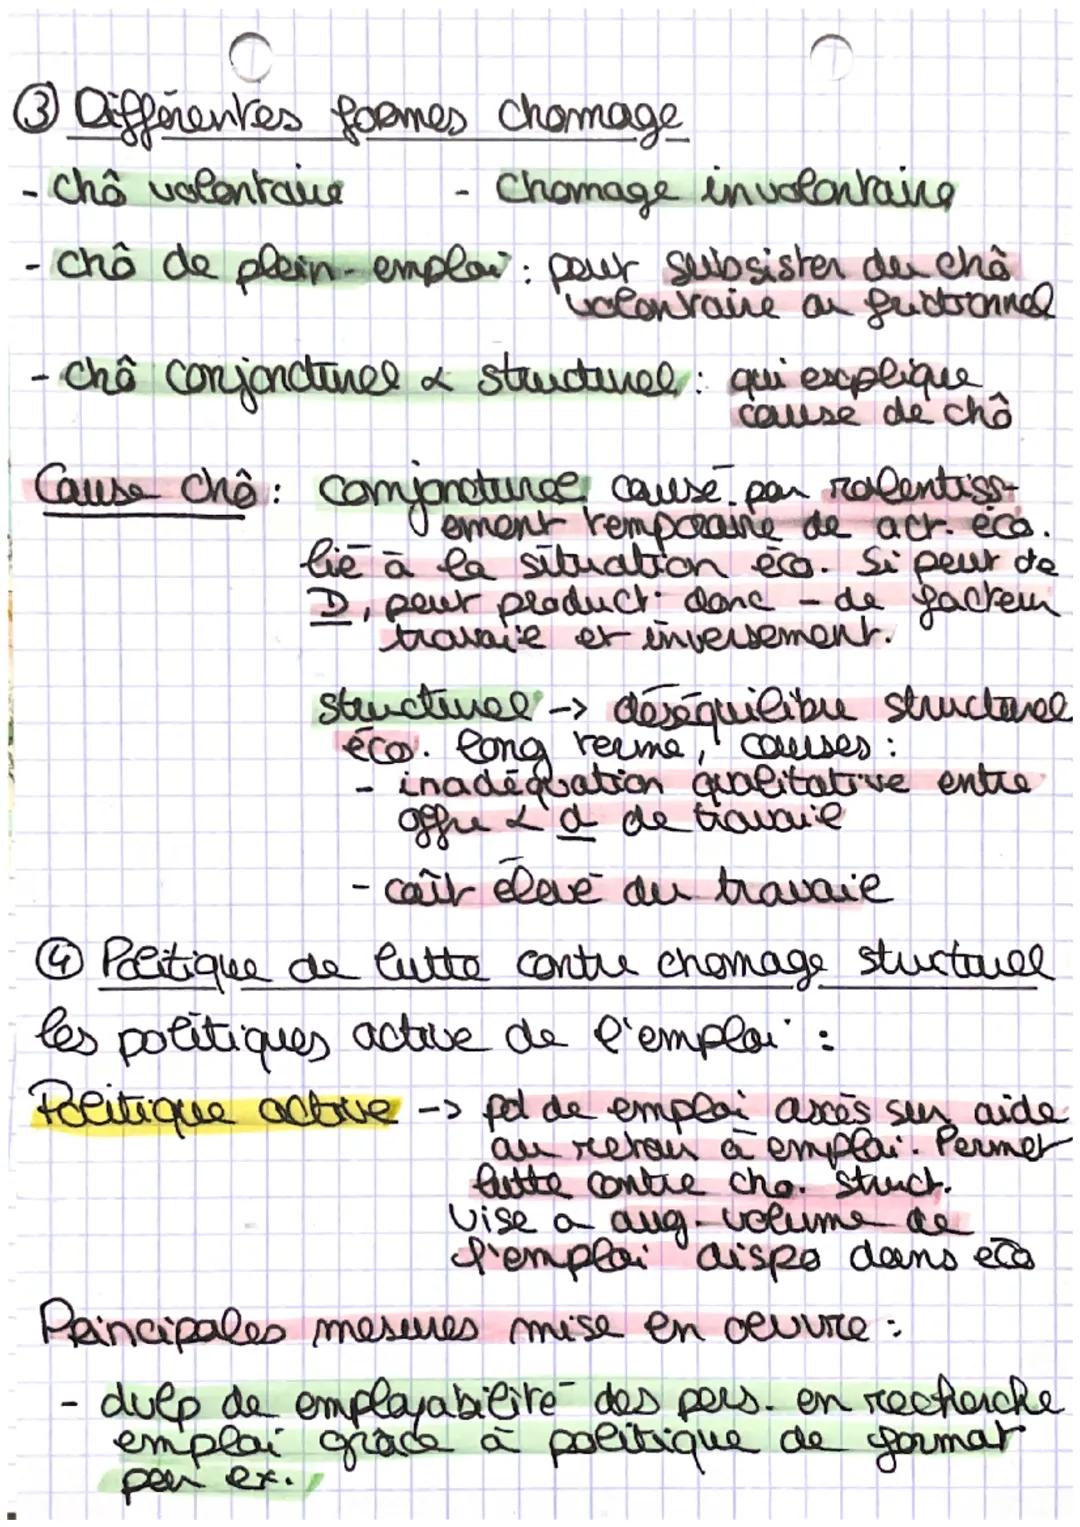 ③ Différentes formes chomage
- chô volontaire - Chomage involontaire
- chô de plein-emploi : peut subsister du chô
volontaire ou frictionnel
- chô conjoncturel & structurel : qui explique
cause de chô
Cause chô : conjoncturel causé par ralentiss-
ement temporaire de act. éco.
lié à la situation éco. Si peu de
D, peu product° donc - de facteur
travail et inversement.
structurel -> déséquilibre structurel
éco. long terme, causes :
- inadéquation qualitative entre
offre & d de travail
- coût élevé du travail
④ Politique de lutte contre chomage stucturel
les politiques active de l'emploi :
Politique active -> pol de emploi axés sur aide
au retour à emploi. Permet
lutte contre cho. struct.
Vise a aug. volume de
l'emploi dispo dans éco
Principales mesures mise en oeuvre :
- dvlp de employabilité des pers. en recherche
emploi grâce à politique de format°
par ex.